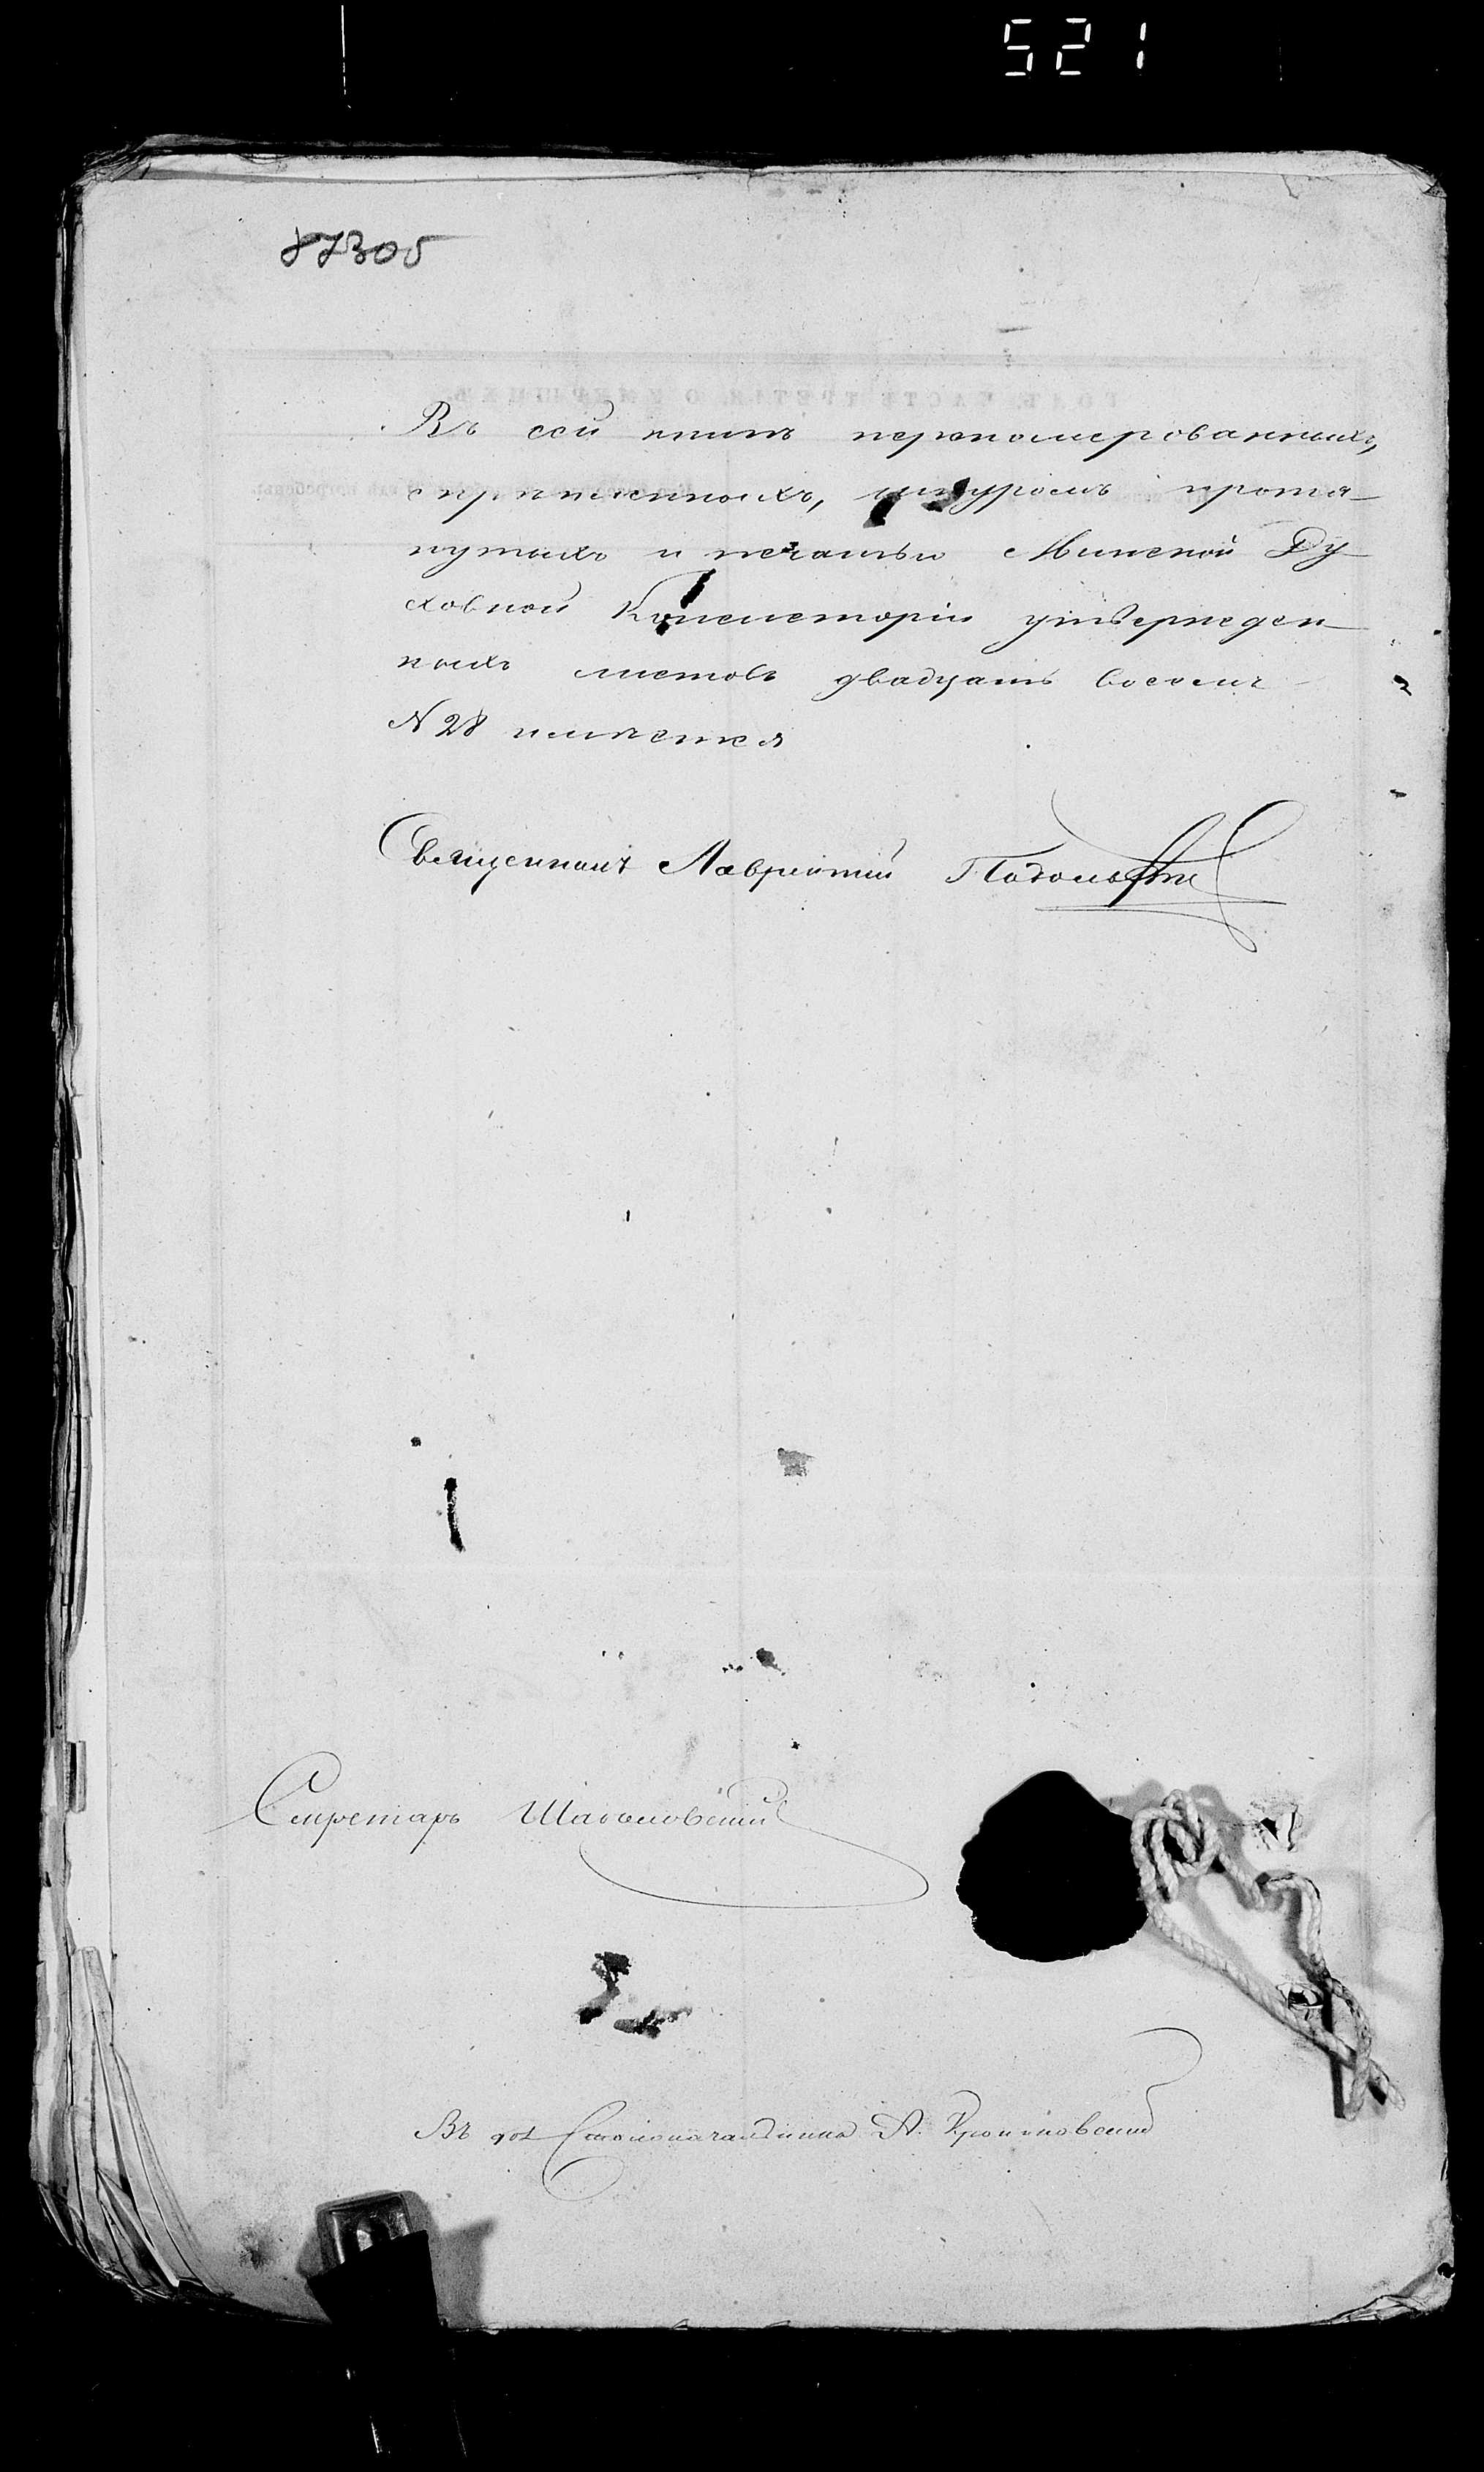 521
87306
Въ сей книгѣ перенумерованныхъ,
скрѣпленныхъ, шнуромъ протя-
нутыхъ и печатью Минской Ду-
ховной Консисторіи утвержден-
ныхъ листовъ двадцать восемь
N 28 имѣется
Священникъ Лаврентій
Секретарь
Въ дол Столоначальника А.